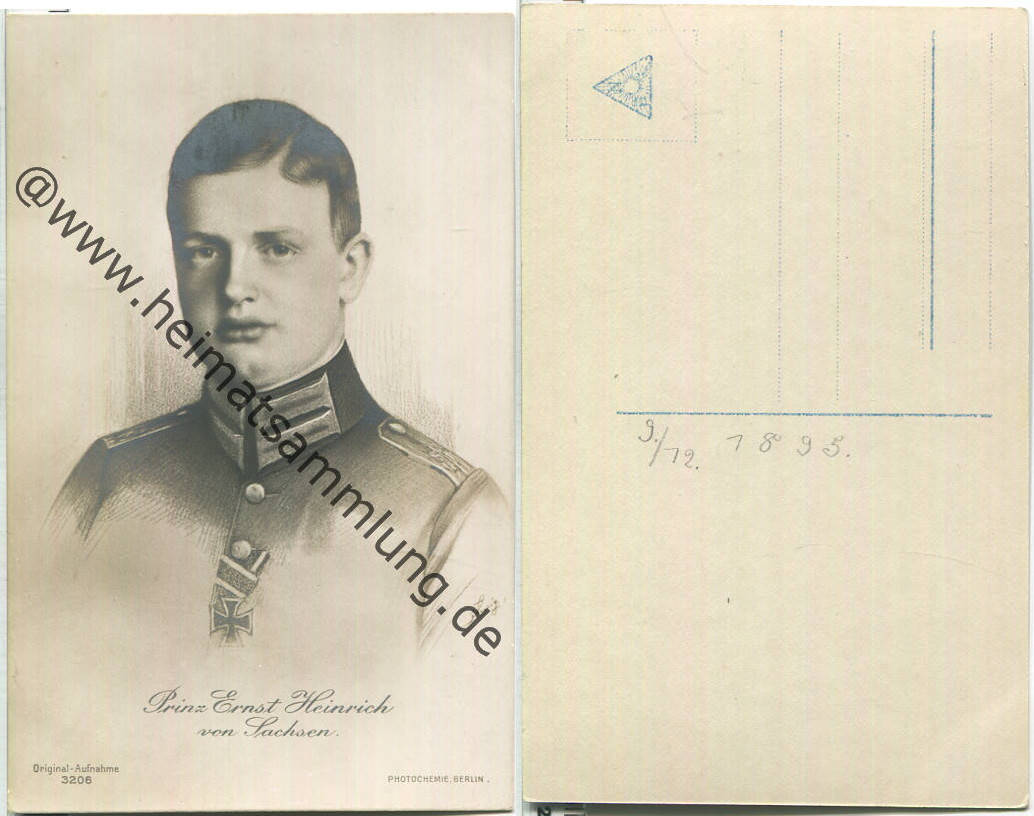 @www.heimatsammlung.de
Prinz Ernst Heinrich
von Sachsen.
Original-Aufnahme
3206
PHOTOCHEMIE, BERLIN.
9./12. 1895.